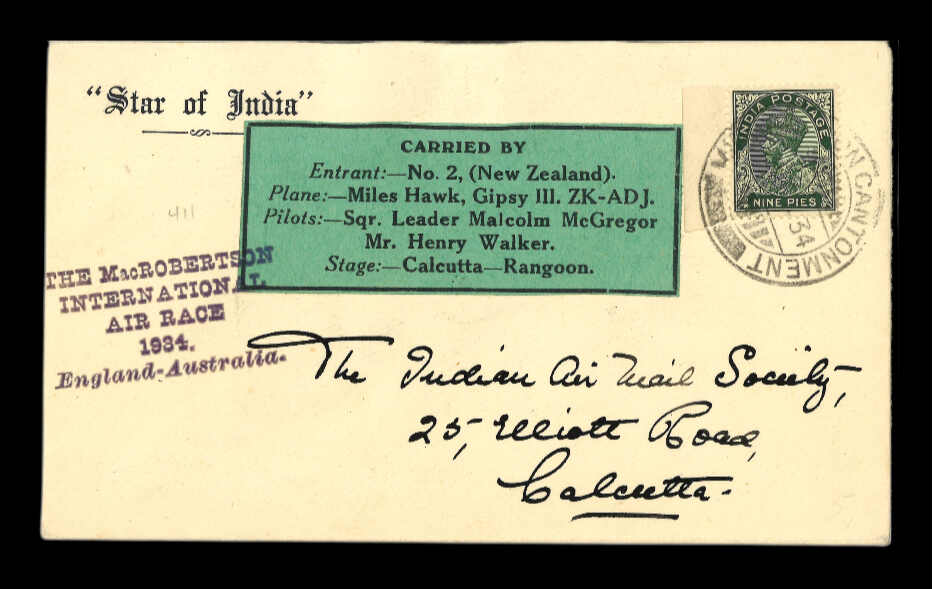 "Star of India"
CARRIED BY
Entrant:—No. 2, (New Zealand).
Plane:—Miles Hawk, Gipsy III. ZK-ADJ.
Pilots:—Sqr. Leader Malcolm McGregor
Mr. Henry Walker.
Stage:—Calcutta—Rangoon.
INDIA POSTAGE
NINE PIES
CANTONMENT
34
411
THE MacROBERTSON
INTERNATIONAL
AIR RACE
1934.
England-Australia.
The Indian Air Mail Society,
25, Elliott Road,
Calcutta.